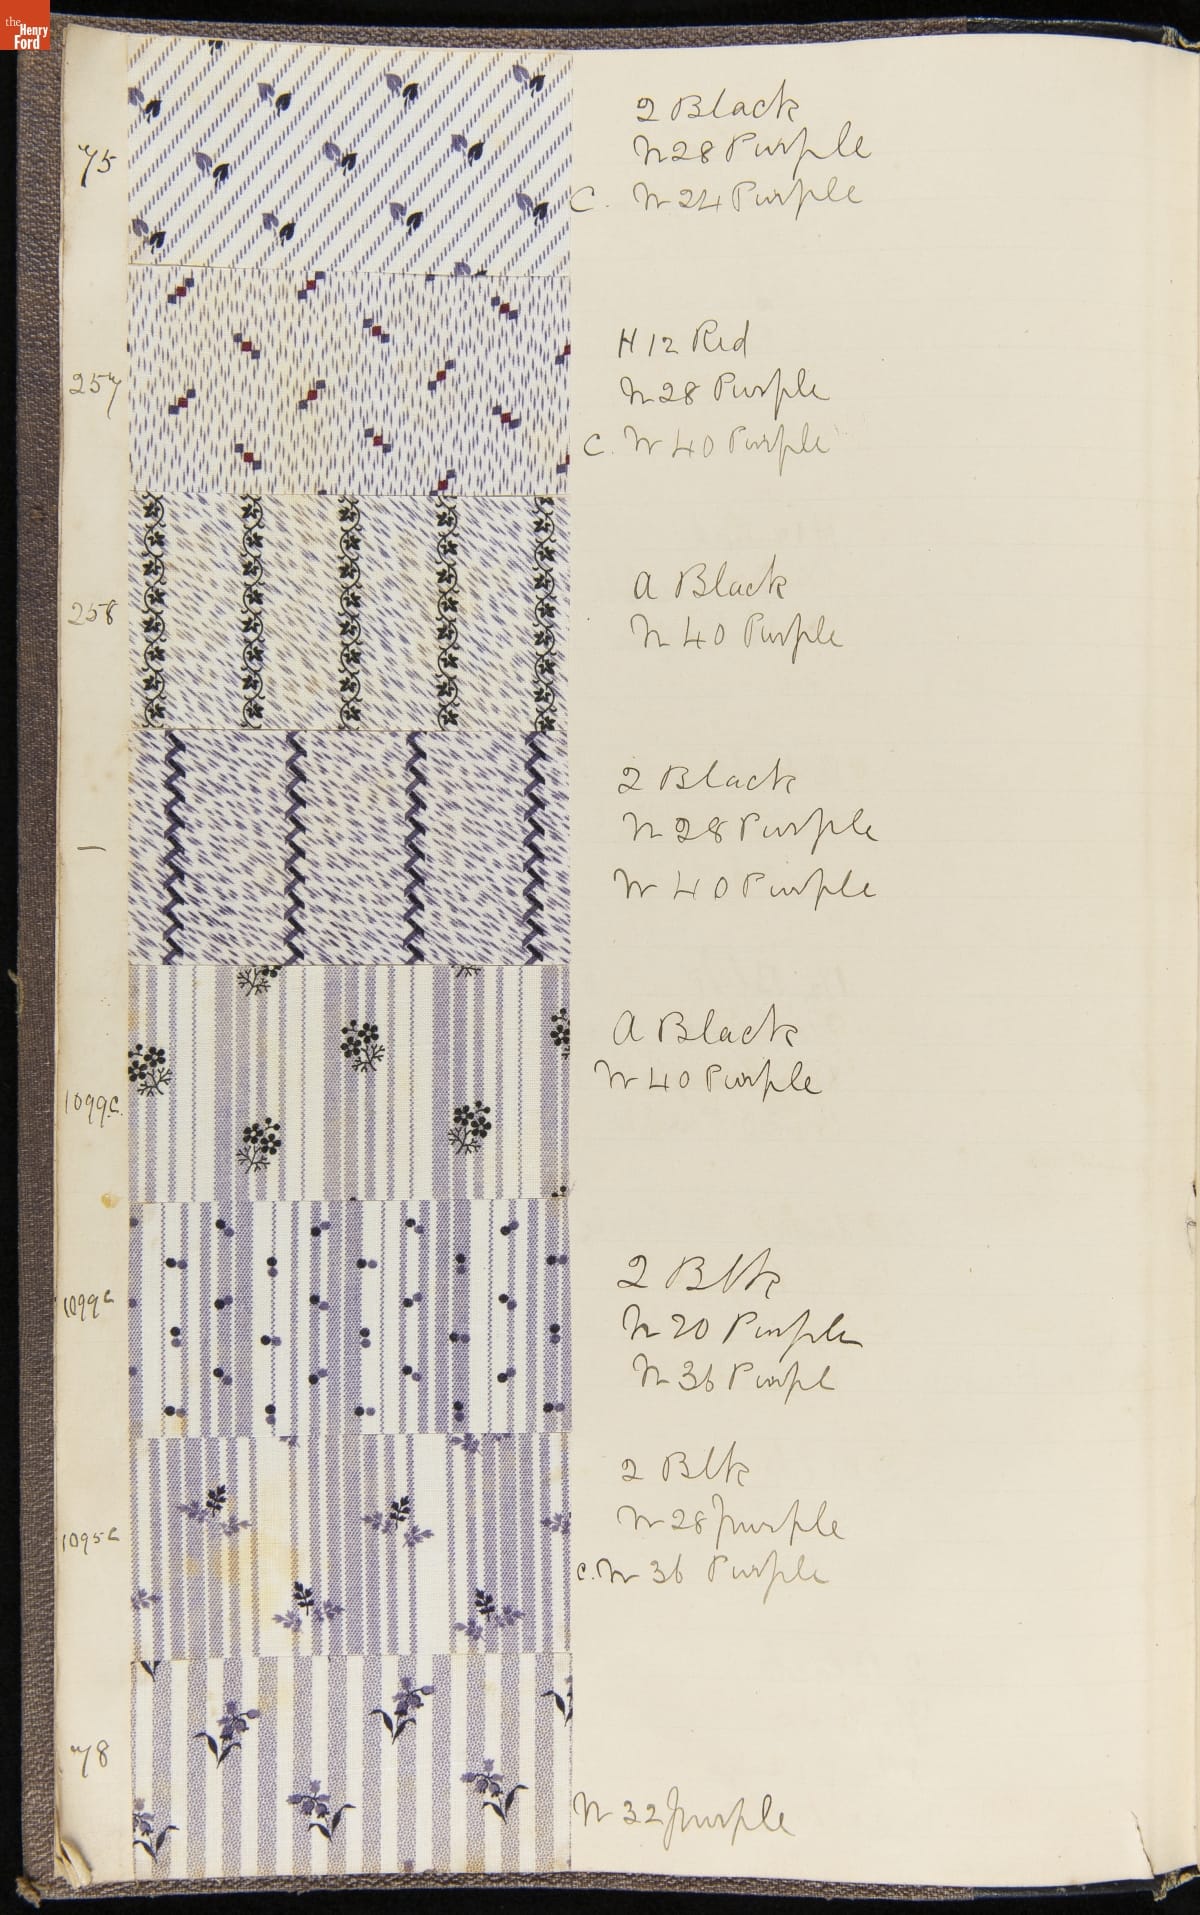 the
Henry
Ford
75
2 Black
N 28 Purple
C. N 24 Purple
257
H 12 Red
N 28 Purple
C. N 40 Purple
258
A Black
N 40 Purple
—
2 Black
N 28 Purple
N 40 Purple
1099C.
A Black
N 40 Purple
1099C
2 Blk
N 20 Purple
N 36 Purpl
1095C
2 Blk
N 28 Purple
C. N 36 Purple
78
N 32 Purple